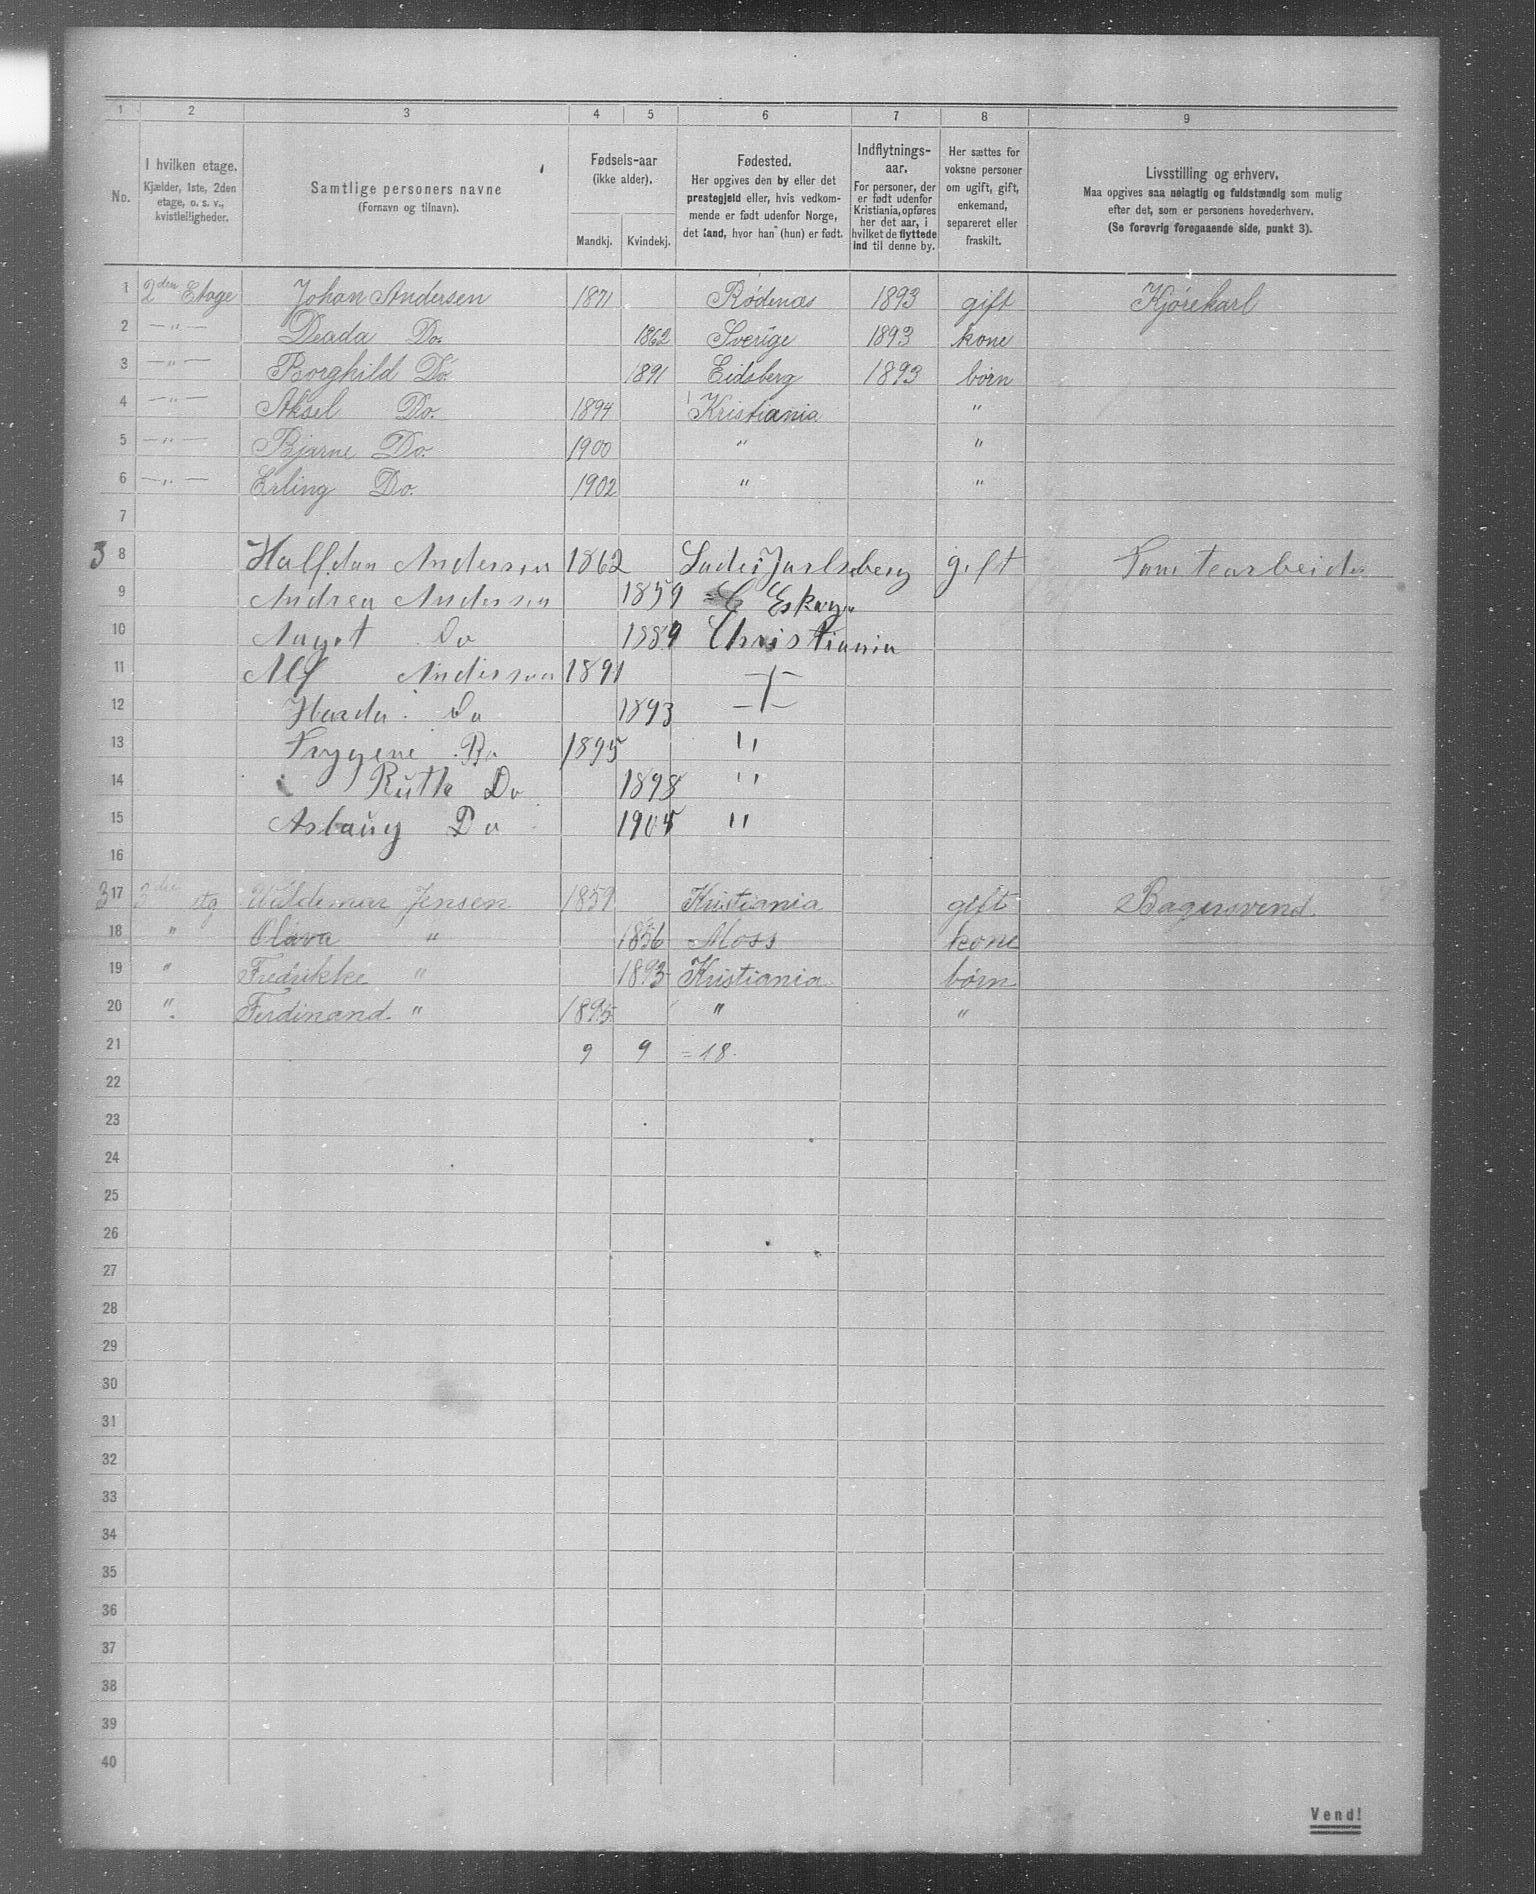 1 2 3 4 5 6 7 8 9
No.
I hvilken etage.
Kjælder, 1ste, 2den
etage, o. s. v.,
kvistleiligheder.
Samtlige personers navne
(Fornavn og tilnavn).
Fødsels-aar
(ikke alder).
Mandkj. Kvindekj.
Fødested.
Her opgives den by eller det
prestegjeld eller, hvis vedkom-
mende er født udenfor Norge,
det land, hvor han (hun) er født.
Indflytnings-
aar.
For personer, der
er født udenfor
Kristiania, opføres
her det aar, i
hvilket de flyttede
ind til denne by.
Her sættes for
voksne personer
om ugift, gift,
enkemand,
separeret eller
fraskilt.
Livsstilling og erhverv.
Maa opgives saa nøiagtig og fuldstændig som mulig
efter det, som er personens hovederhverv.
(Se forøvrig foregaaende side, punkt 3).
1 2den Etage Johan Andersen 1871 Rødenæs 1893 gift Kjørekarl
2 — " — Do. 1862 Sverige 1893 kone
3 — " — Borghild Do 1891 Eidsberg 1893 børn
4 — " — Aksel Do. 1894 Kristiania "
5 — " — Bjarne Do. 1900 " "
6 — " — Erling Do. 1902 " "
7
3 8 Halfdan Andersen 1862 Jarlsberg gift
9 Andrea Andersen 1859
10 Do 1889 Christiania
11 Alf Andersen 1891
12 Do 1893
13 1895 "
14 Ruth Do 1898 "
15 Aslaug Do 1905 "
16
3 17 3die etg Valdemar Jensen 1859 Kristiania gift Bagersvend
18 " Olava " 1856 Moss kone
19 " Fredrikke " 1893 Kristiania børn
20 " Ferdinand " 1895 " "
21 9 9 = 18.
22
23
24
25
26
27
28
29
30
31
32
33
34
35
36
37
38
39
40
Vend!